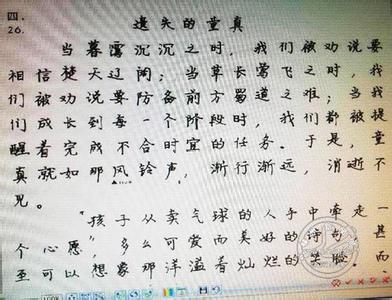 四.
26. 遗失的童真
当暮霭沉沉之时，我们被劝说要
相信楚天辽阔；当草长莺飞之时，我
们被劝说要防备前方蜀道之难；当我
们成长到每一个阶段时，我们都被提
醒着完成不合时宜的任务。于是，童
真就如那风铃声，渐行渐远，消逝不
见。
"孩子从卖气球的人手中牵走一
个心愿"，多么可爱而美好的诗句，甚而
至可以想象那洋溢着灿烂的笑脸。